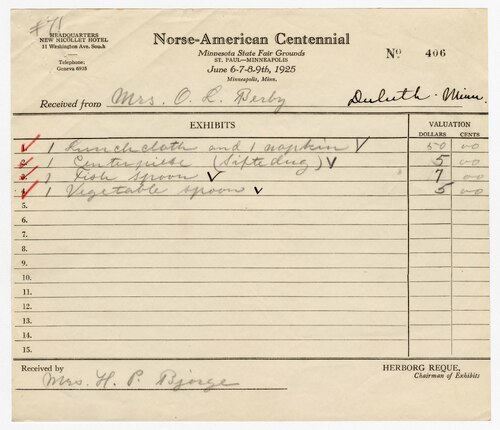 #71
HEADQUARTERS
NEW NICOLLET HOTEL
11 Washington Ave. South
Telephone:
Geneva 6935
Norse-American Centennial
Minnesota State Fair Grounds
ST. PAUL—MINNEAPOLIS
June 6-7-8-9th, 1925
Minneapolis, Minn.
No. 406
Received from Mrs. O. L. Derby Duluth. Minn.
EXHIBITS VALUATION
DOLLARS CENTS
1 Lunch cloth and 1 napkin V 50 00
2. 1 Centerpiece (Siftedug) V 5 00
3. 1 Fish spoon V 7 00
4. 1 Vegetable spoon V 5 00
5.
6.
7.
8.
9.
10.
11.
12.
13.
14.
15.
Received by Mrs. H. P. Bjorge
HERBORG REQUE,
Chairman of Exhibits